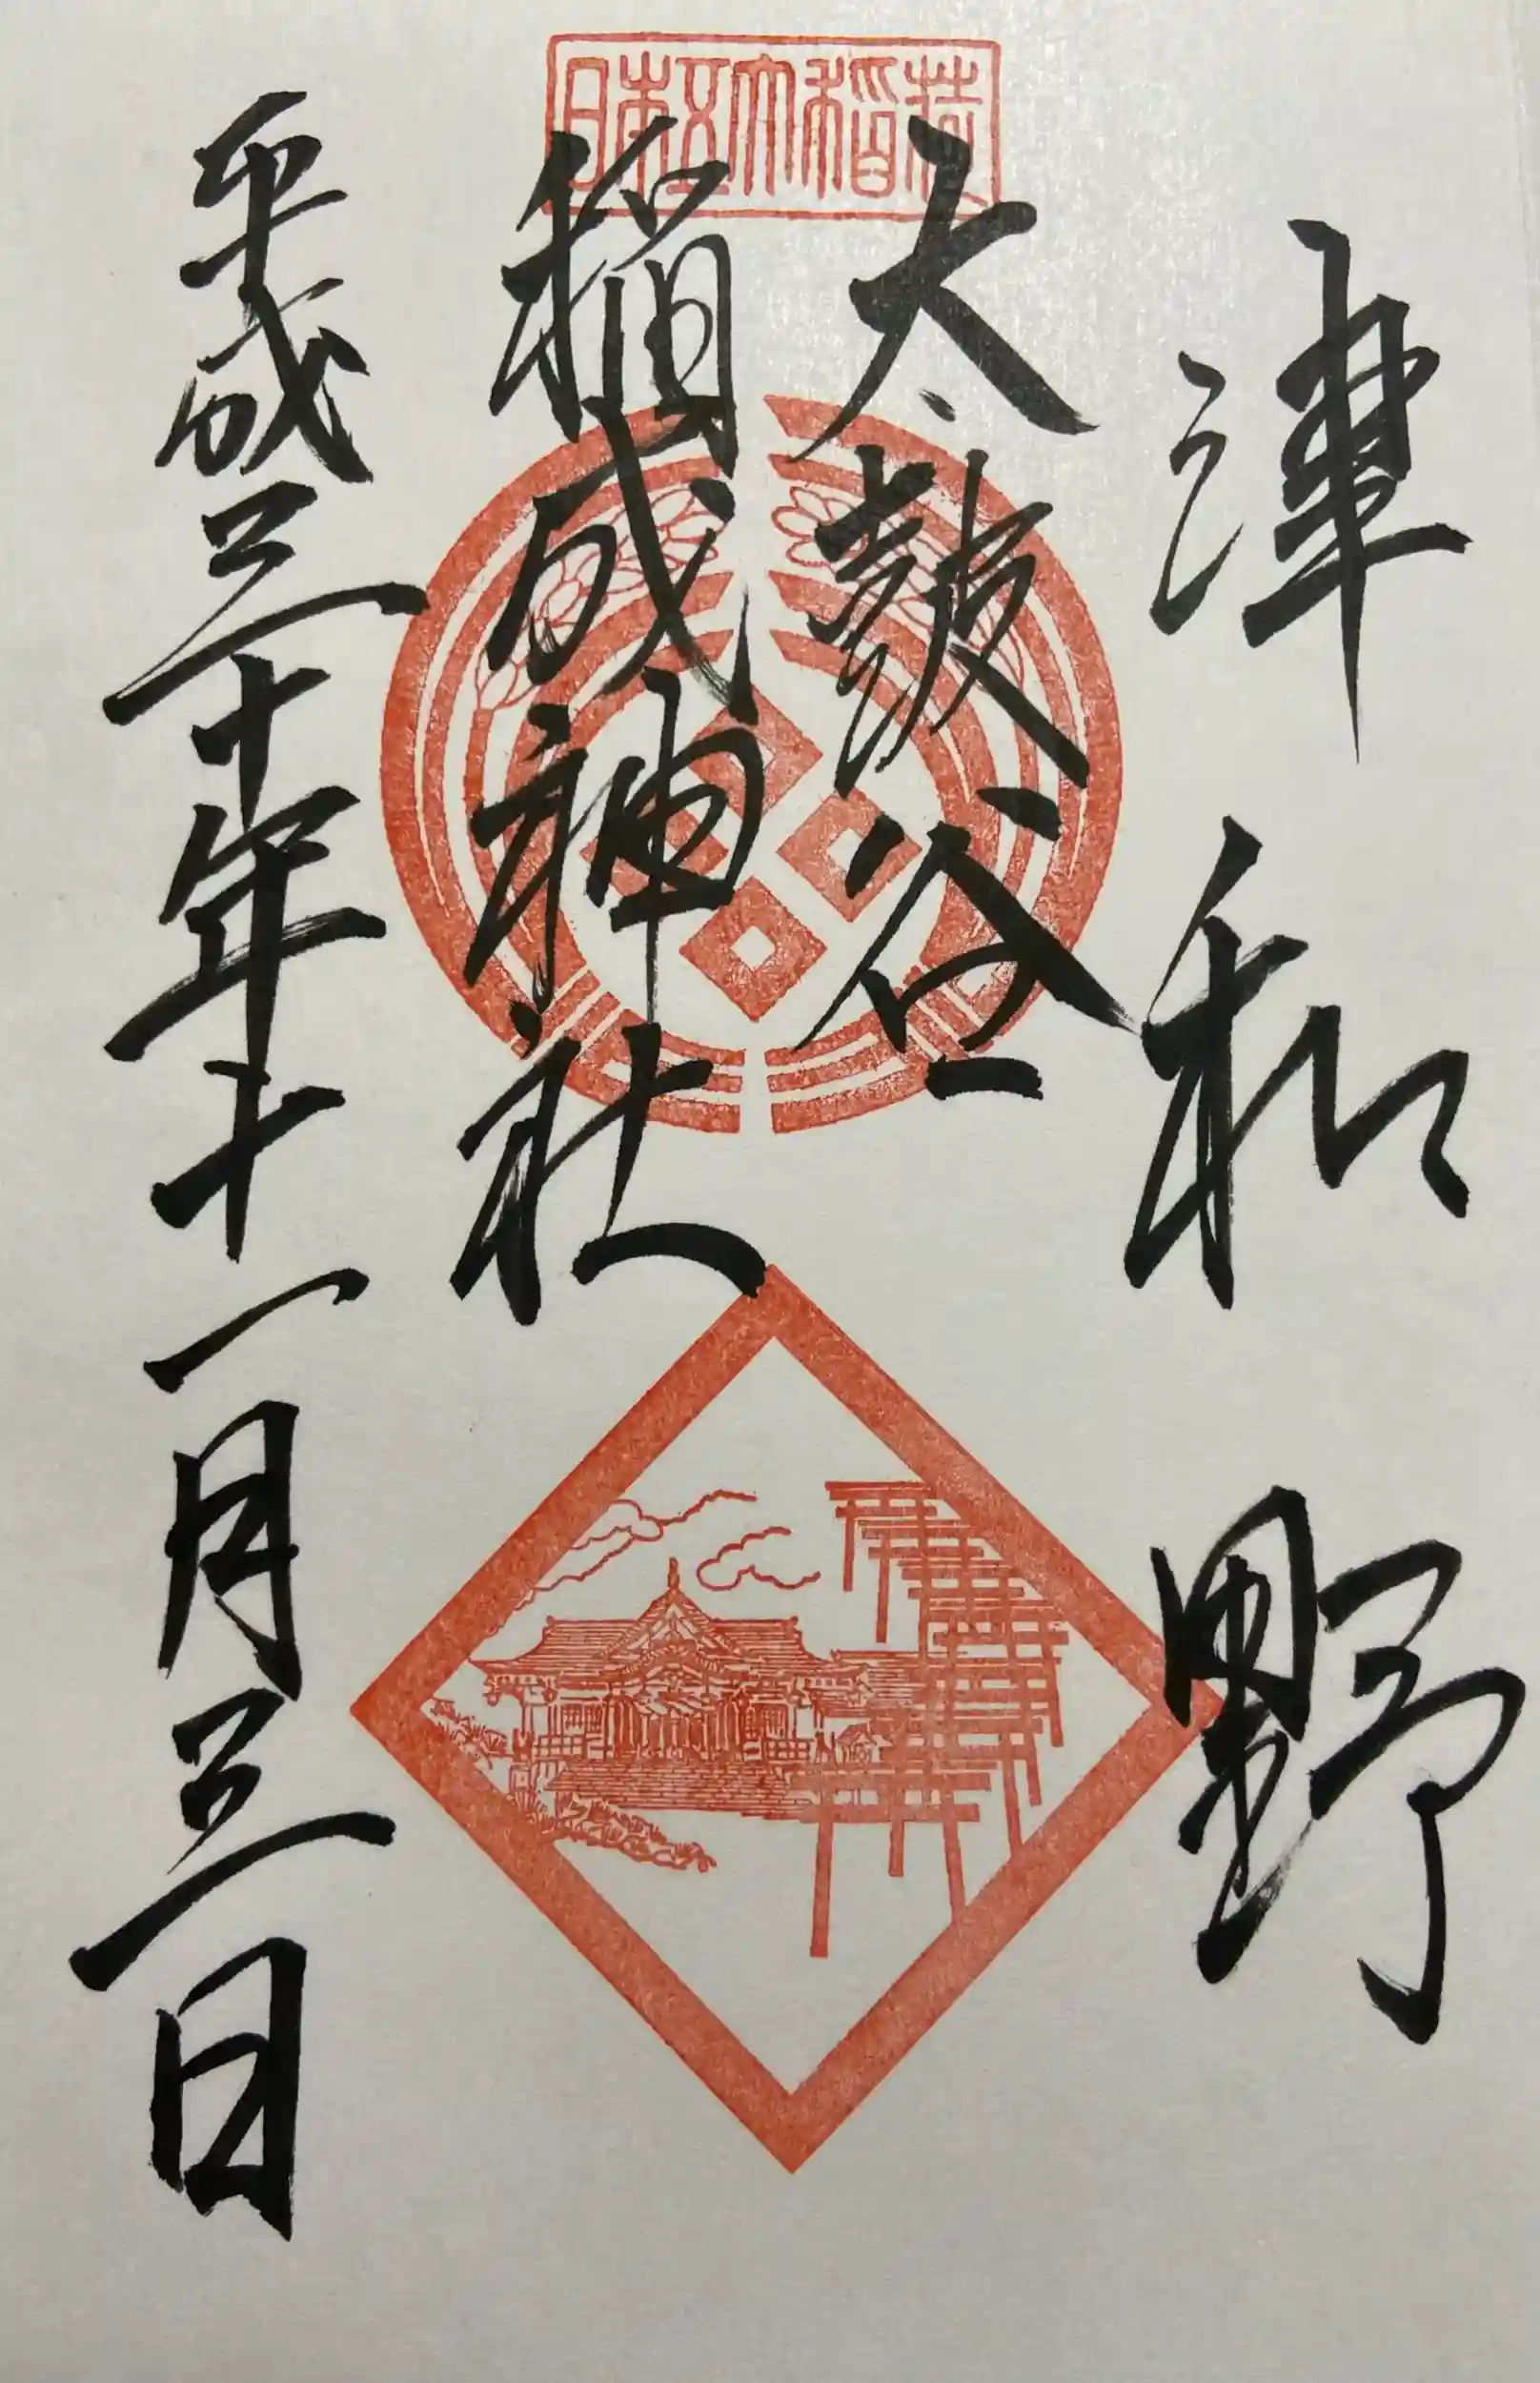 日本五大稲荷
津和野
太皷谷
稲成神社
平成三十年十一月三日